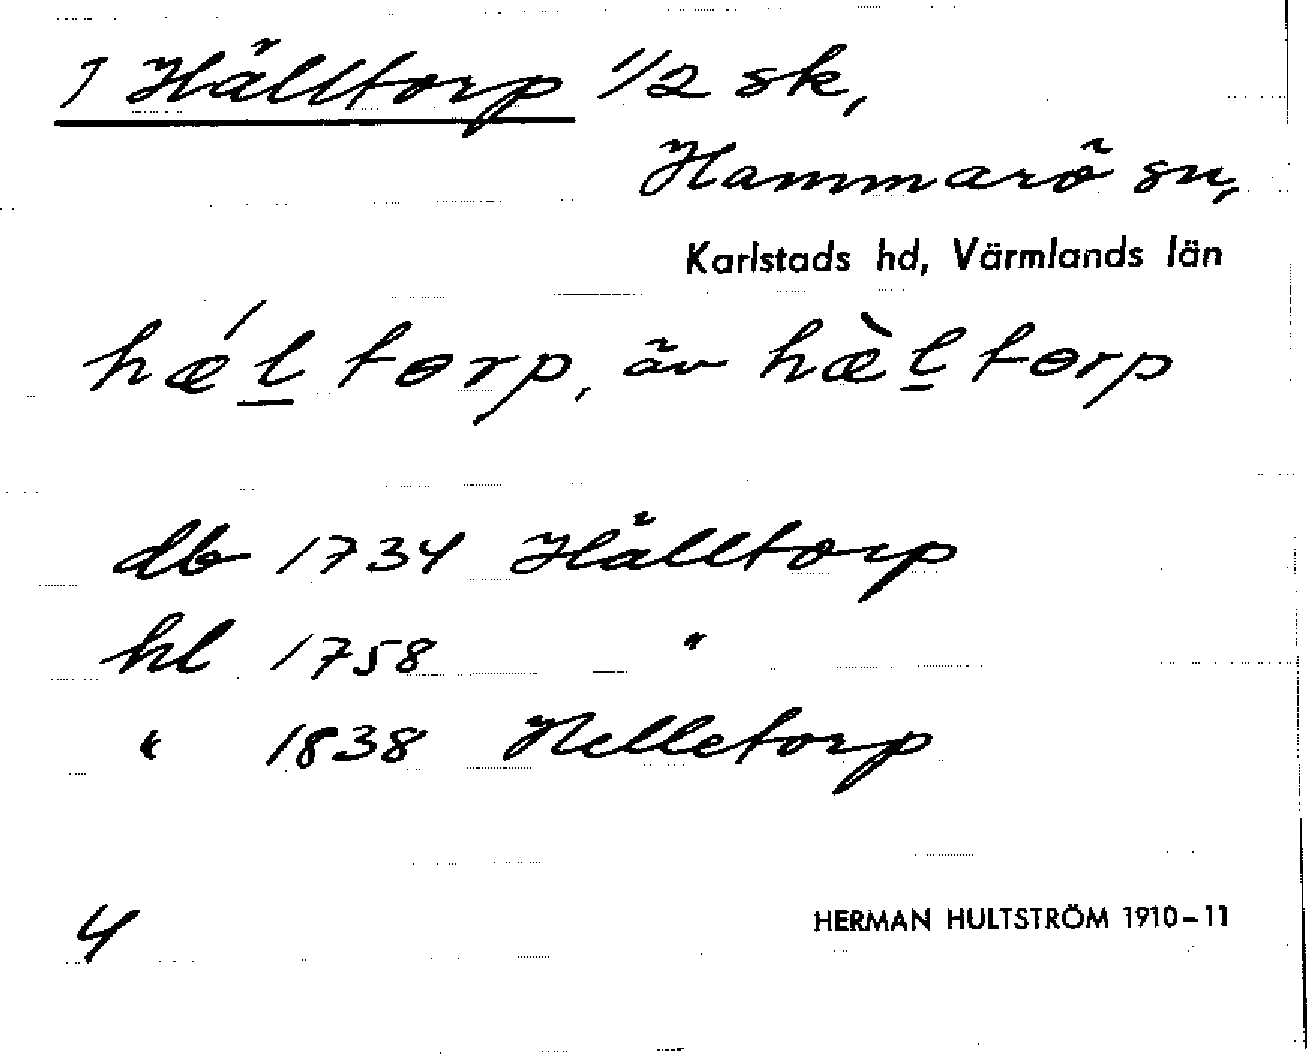 1 Hälltorp 1/2 sk,
Hammarö sn,
Karlstads hd, Värmlands län
hǽl̲torp, äv hæ̀l̲torp
db 1734 Hälltorp
hl 1758 "
" 1838 Helletorp
4 HERMAN HULTSTRÖM 1910-11